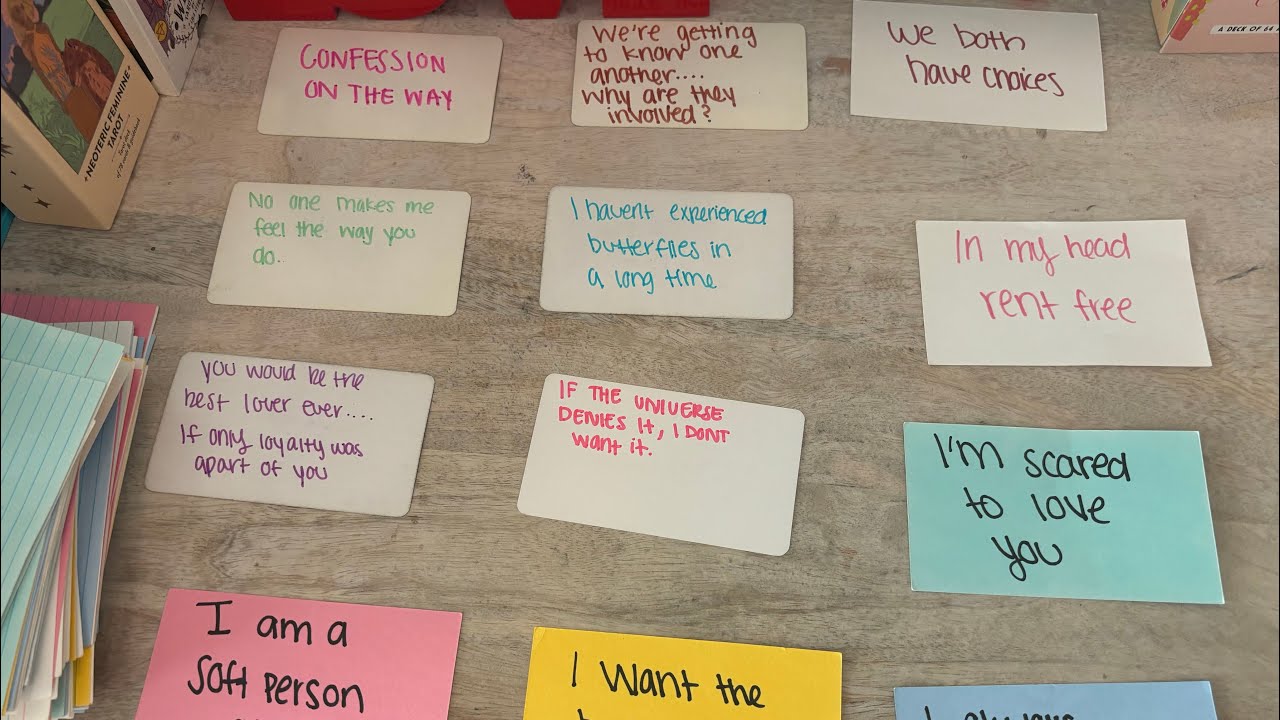 CONFESSION
ON THE WAY
We're getting
to know one
another....
why are they
involved?
We both
have choices
A DECK OF 64
NEOTERIC FEMININE
TAROT
No one makes me
feel the way you
do.
I havent experienced
butterflies in
a long time
In my head
rent free
you would be the
best lover ever....
If only loyalty was
apart of you
IF THE UNIVERSE
DENIES It, I DONT
want it.
I'm scared
to love
you
I am a
soft person
I want the